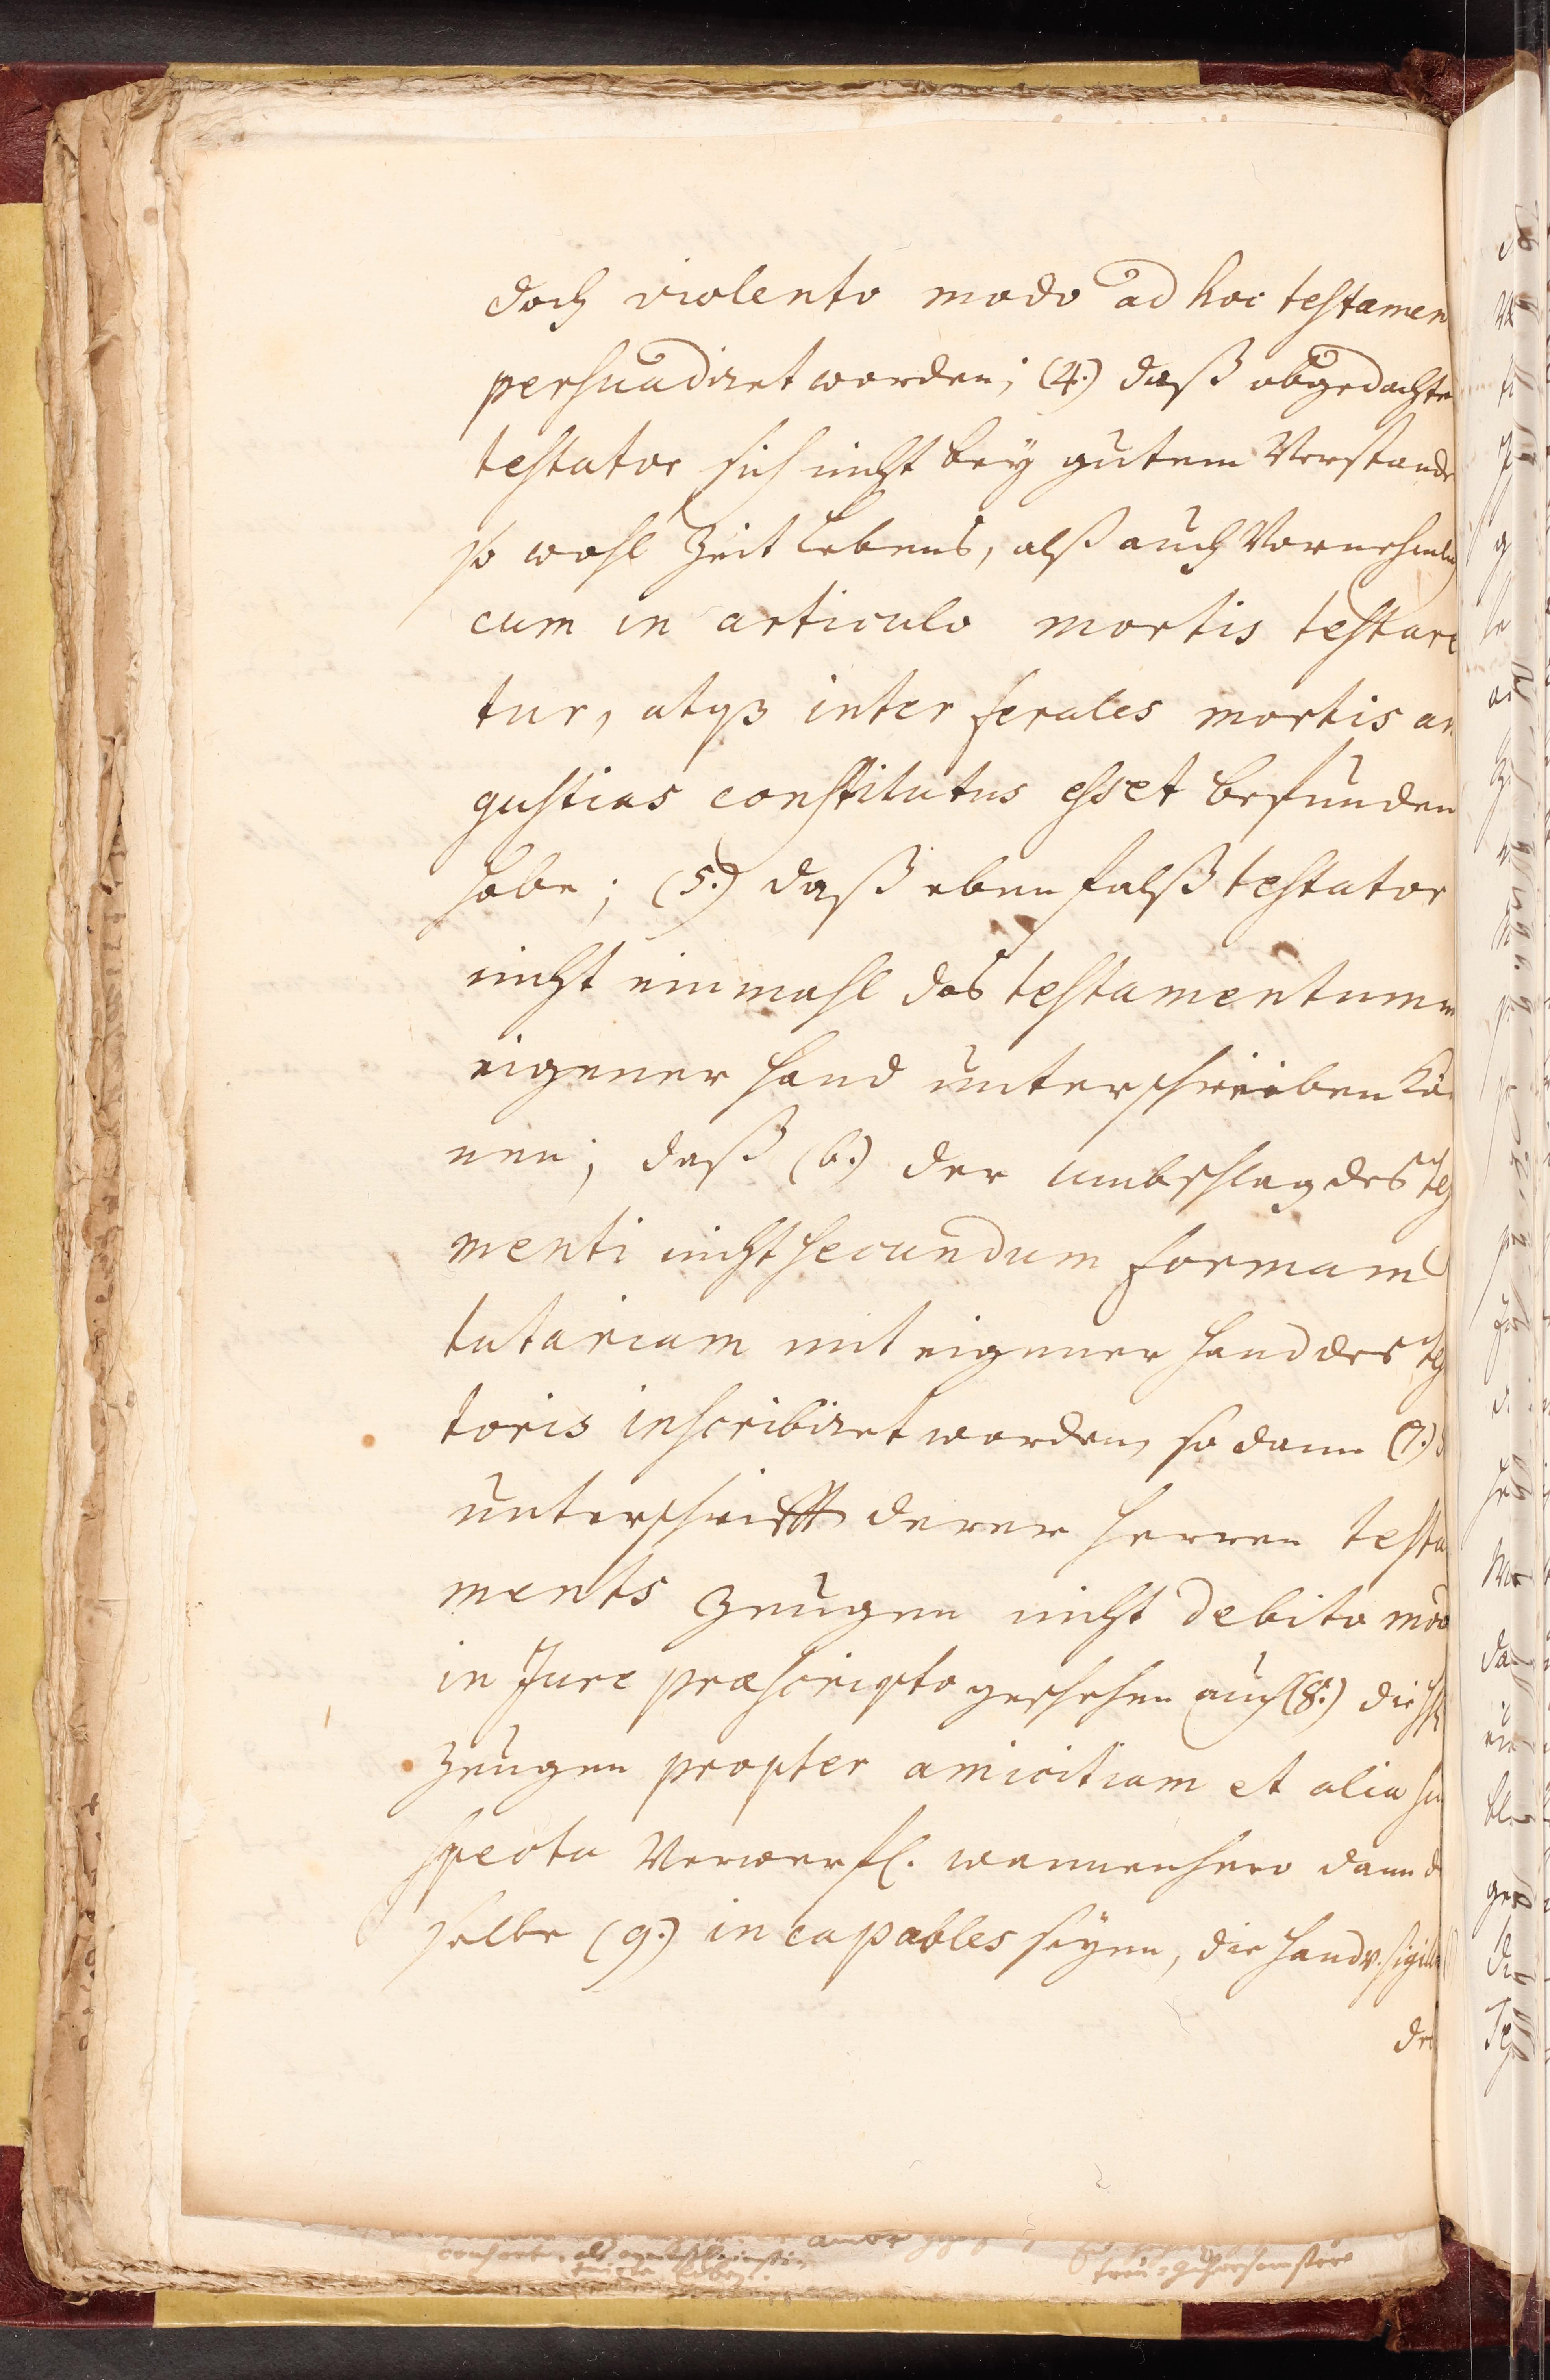 doch violento modo ad hoc testamen
persuadiret worden; (4.) daß obgedachter
testator sich nicht bey gutem Verstande
so wohl Zeit Lebens, alß auch Vornehmlich
cum in articulo mortis testare
tur, atqz inter ferales mortis an
gustias constitutus esset befunden
habe; (5.) daß eben falß testator
nicht ein mahl das testamentum m
eigener hand unterschreiben kön
nen; daß (6.) der umbschlag des tes
menti nicht secundum formam
tutariam mit eigener hand des tes
toris inscribiret worden, so dann (7.) d
unterschrifft derer herren testa
ments zeugen nicht debito modo
in Jure præscripto geschehen auch (8.) die
zeugen propter amicitiam et alia su
specta Verwerfl. wannenhero dann d
selbe (9.) incapables seyen, die hand v. sigill
der
treu-gehorsamster